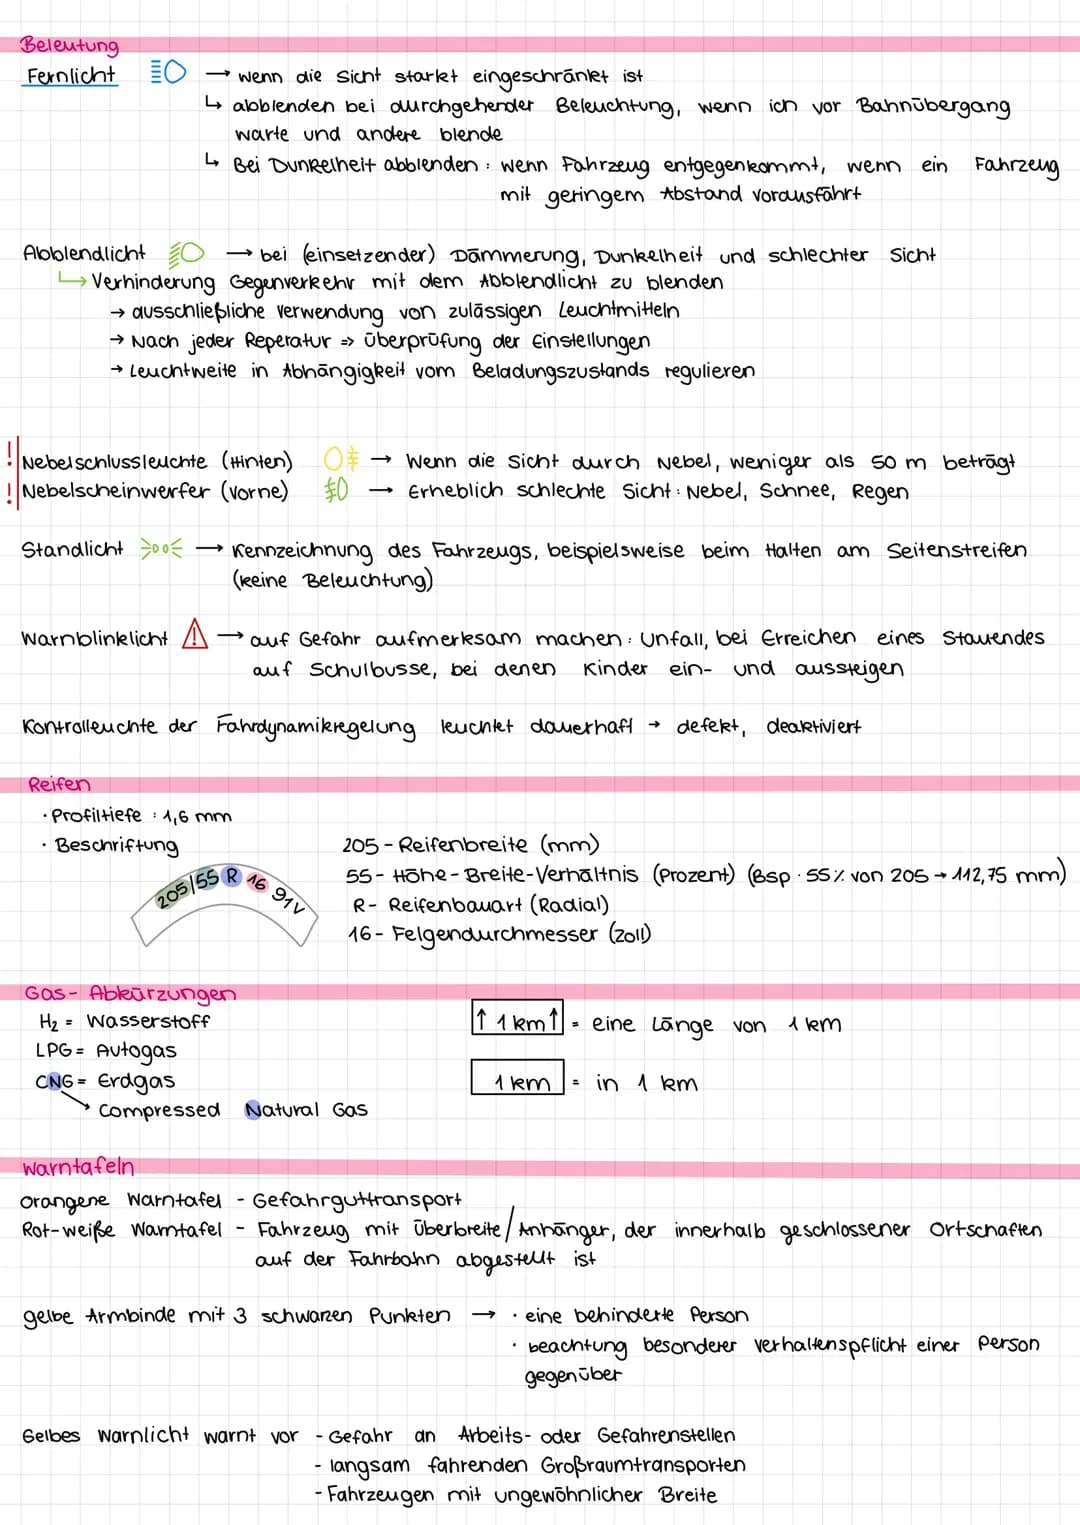 Beleutung
Fernlicht → wenn die Sicht starkt eingeschränkt ist
↳ abblenden bei durchgehender Beleuchtung, wenn ich vor Bahnübergang
warte und andere blende
↳ Bei Dunkelheit abblenden: wenn Fahrzeug entgegenkommt, wenn ein Fahrzeug
mit geringem Abstand vorausfährt
Abblendlicht → bei (einsetzender) Dämmerung, Dunkelheit und schlechter Sicht
↳ Verhinderung Gegenverkehr mit dem Abblendlicht zu blenden
→ ausschließliche Verwendung von zulässigen Leuchtmitteln
→ Nach jeder Reperatur => Überprüfung der Einstellungen
→ Leuchtweite in Abhängigkeit vom Beladungszustands regulieren
! Nebelschlussleuchte (Hinten) → Wenn die Sicht durch Nebel, weniger als 50 m beträgt
! Nebelscheinwerfer (Vorne) → Erheblich schlechte Sicht: Nebel, Schnee, Regen
Standlicht → Kennzeichnung des Fahrzeugs, beispielsweise beim Halten am Seitenstreifen
(keine Beleuchtung)
Warnblinklicht → auf Gefahr aufmerksam machen: Unfall, bei Erreichen eines Stauendes
auf Schulbusse, bei denen Kinder ein- und aussteigen
Kontrolleuchte der Fahrdynamikregelung leuchtet dauerhaft → defekt, deaktiviert
Reifen
· Profiltiefe : 1,6 mm
· Beschriftung
205/55 R 16 91V
205 - Reifenbreite (mm)
55 - Höhe-Breite-Verhältnis (Prozent) (Bsp. 55% von 205 → 112,75 mm)
R - Reifenbauart (Radial)
16 - Felgendurchmesser (Zoll)
Gas- Abkürzungen
H₂ = Wasserstoff
LPG = Autogas
CNG = Erdgas
Compressed Natural Gas
↑ 1 km ↑ = eine Länge von 1 km
1 km = in 1 km
Warntafeln
Orangene Warntafel - Gefahrguttransport
Rot-weiße Warntafel - Fahrzeug mit Überbreite / Anhänger, der innerhalb geschlossener Ortschaften
auf der Fahrbahn abgestellt ist
gelbe Armbinde mit 3 schwarzen Punkten → · eine behinderte Person
· beachtung besonderer Verhaltenspflicht einer Person
gegenüber
Gelbes Warnlicht warnt vor - Gefahr an Arbeits- oder Gefahrenstellen
- langsam fahrenden Großraumtransporten
- Fahrzeugen mit ungewöhnlicher Breite